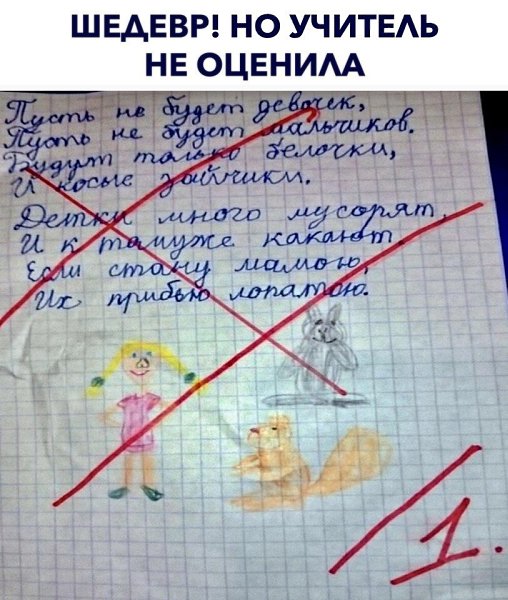 ШЕДЕВР! НО УЧИТЕЛЬ
НЕ ОЦЕНИЛА
Пусть не будет девочек,
Пусть не будет мальчиков.
Будут только белочки,
И косые зайчики.
Детки много мусорят
И к тамуже какают.
Если стану мамою,
Их прибью лопатою.
1.